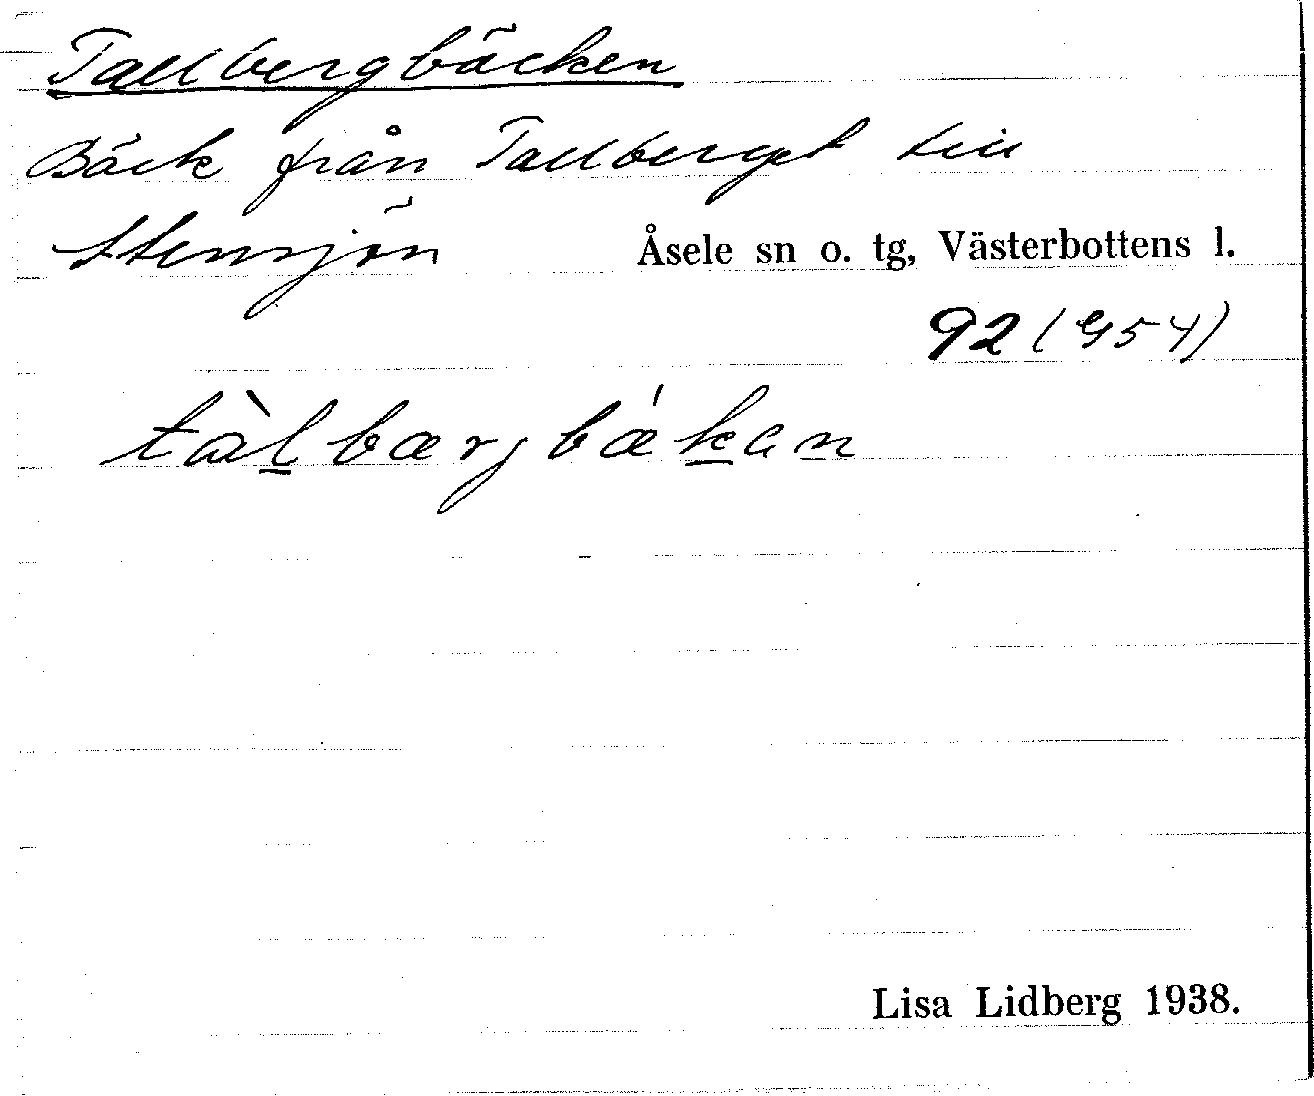 Tallbergbäcken
Bäck från Tallberget till
Stensjön
Åsele sn o. tg, Västerbottens l.
92 (954)
tàlbærjbækan
Lisa Lidberg 1938.